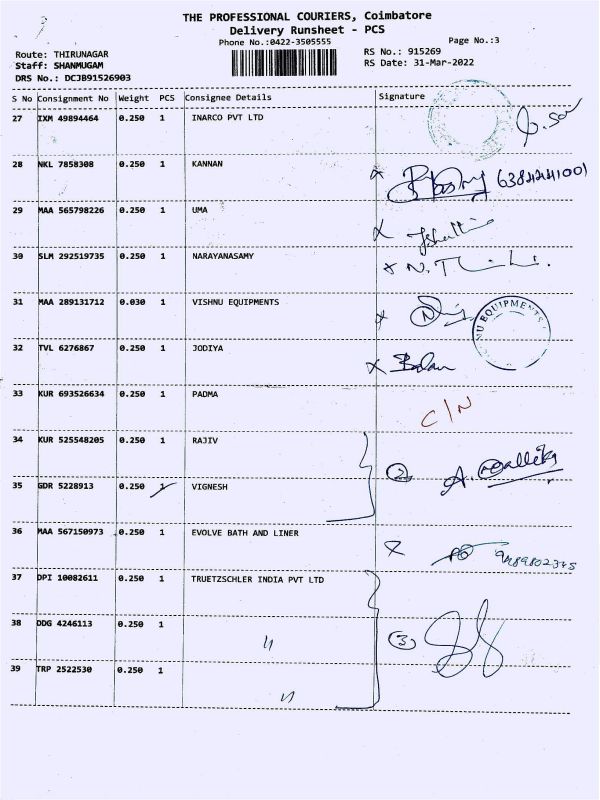 THE PROFESSIONAL COURIERS, Coimbatore
Delivery Runsheet - PCS
Phone No.:0422-3505555
Page No.:3
Route: THIRUNAGAR
Staff: SHANMUGAM
DRS No.: DCJB91526903
RS No.: 915269
RS Date: 31-Mar-2022
S No Consignment No Weight PCS Consignee Details Signature
27 IXM 49894464 0.250 1 INARCO PVT LTD
28 NKL 7858308 0.250 1 KANNAN 6384441001
29 MAA 565798226 0.250 1 UMA
30 SLM 292519735 0.250 1 NARAYANASAMY
31 MAA 289131712 0.030 1 VISHNU EQUIPMENTS
NU EQUIPMENTS
32 TVL 6276867 0.250 1 JODIYA Balan
33 KUR 693526634 0.250 1 PADMA C/N
34 KUR 525548205 0.250 1 RAJIV
2 A. Mallika
35 GDR 5228913 0.250 1 VIGNESH
36 MAA 567150973 0.250 1 EVOLVE BATH AND LINER 9489802345
37 DPI 10082611 0.250 1 TRUETZSCHLER INDIA PVT LTD
38 DDG 4246113 0.250 1 〃 3
39 TRP 2522530 0.250 1 〃